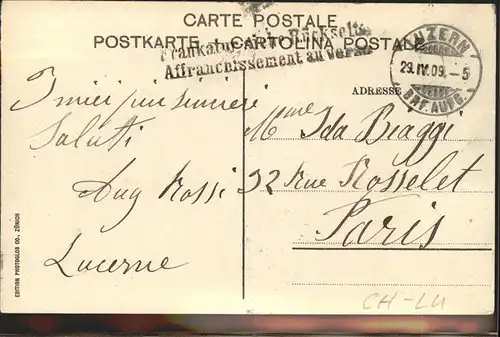 CARTE POSTALE
POSTKARTE - CARTOLINA POSTALE
Frankatur siehe Rückseite
Affranchissement au verso
LUZERN
29.IV.09.-5
BRF.AUFG.
ADRESSE
I miei più sinceri
Saluti
Aug Rossi
Lucerne
Mme Ida Biaggi
32 Rue Rosselet
Paris
EDITION PHOTOGLOB CO., ZÜRICH
CH-LU